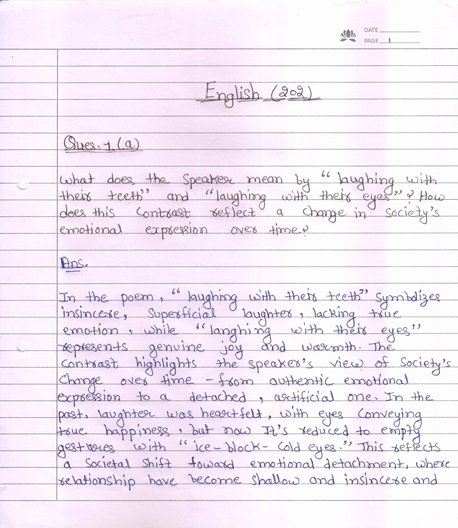 DATE
PAGE 1
English (202)
Ques. 1 (a)
What does the Speaker mean by "laughing with
their teeth" and "laughing with their eyes"? How
does this Contrast reflect a change in Society's
emotional expression over time?
Ans.
In the poem, "laughing with their teeth" Symbolizes
insincere, Superficial laughter, lacking true
emotion, while "langhing with their eyes"
represents genuine joy and warmth. The
Contrast highlights the speaker's view of Society's
Change over time - from authentic emotional
expression to a detached, artificial one. In the
past, laughter was heartfelt, with eyes Conveying
true happiness, but now It's reduced to empty
gestures with "ice-block-Cold eyes." This reflects
a Societal Shift toward emotional detachment, where
relationship have become shallow and insincere and